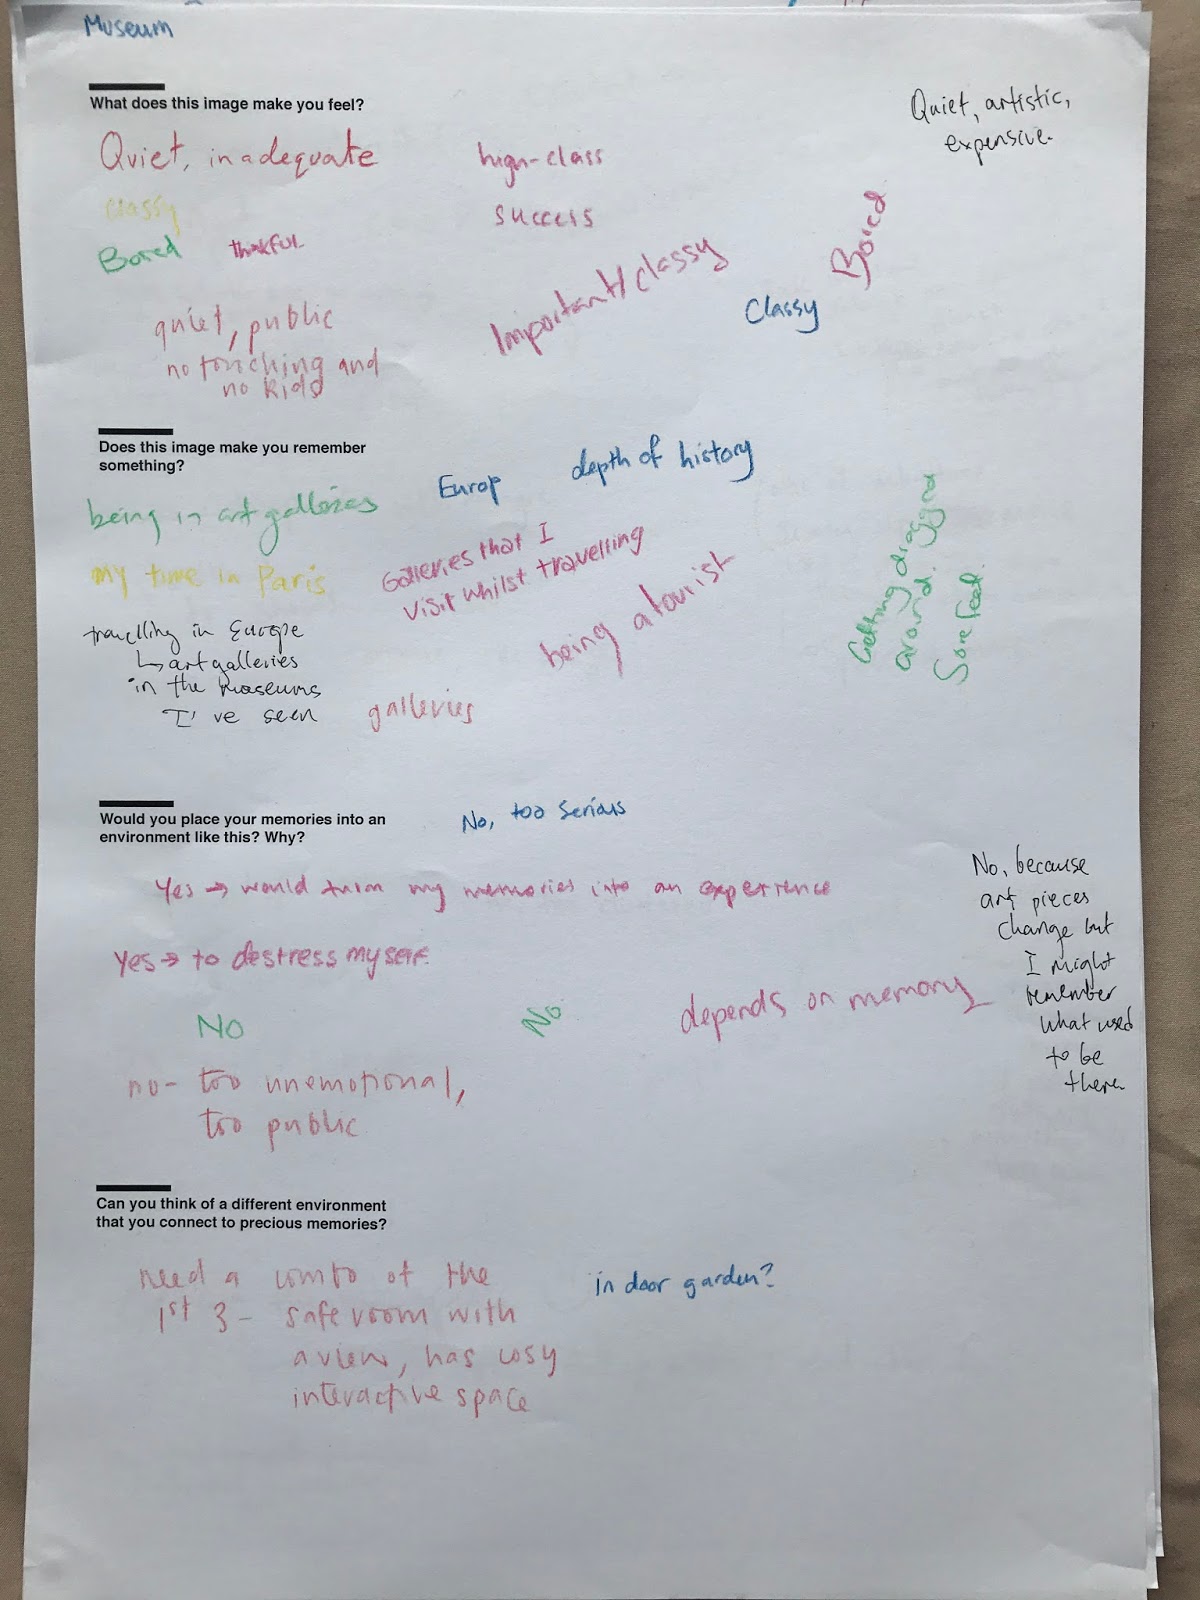 Museum
What does this image make you feel?
Quiet, inadequate
high-class
Quiet, artistic,
expensive.
classy
success
Bored
thinkful
Important/classy
Classy
Bored
quiet, public
no touching and
no kids
Does this image make you remember
something?
Europ
depth of history
being in art galleries
my time in Paris
Galleries that I
visit whilst travelling
being a tourist
Getting dragged
around.
Sore feet.
travelling in Europe
↳ art galleries
in the museums
I've seen
galleries
Would you place your memories into an
environment like this? Why?
No, too serious
Yes → would turn my memories into an experience
Yes → to destress myself.
No
No
depends on memory
No, because
art pieces
change but
I might
remember
what used
to be
there
no- too unemotional,
too public
Can you think of a different environment
that you connect to precious memories?
need a combo of the
1st 3 - safe room with
a view, has cosy
interactive space
in door garden?